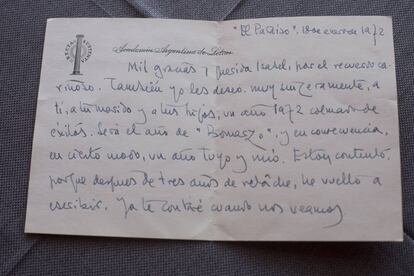 "El Paraíso". 18 de enero de 1972
RECTA SUSTENTA
Academia Argentina de Letras
Mil gracias, querida Isabel, por el recuerdo ca-
riñoso. También yo les deseo, muy sinceramente, a
ti, a tu marido y a tus hijos, un año 1972 colmado de
éxitos. Será el año de "Bomarzo", y en consecuencia,
en cierto modo, un año tuyo y mío. Estoy contento,
porque después de tres años de relâche, he vuelto a
escribir. Ya te contaré cuando nos veamos.